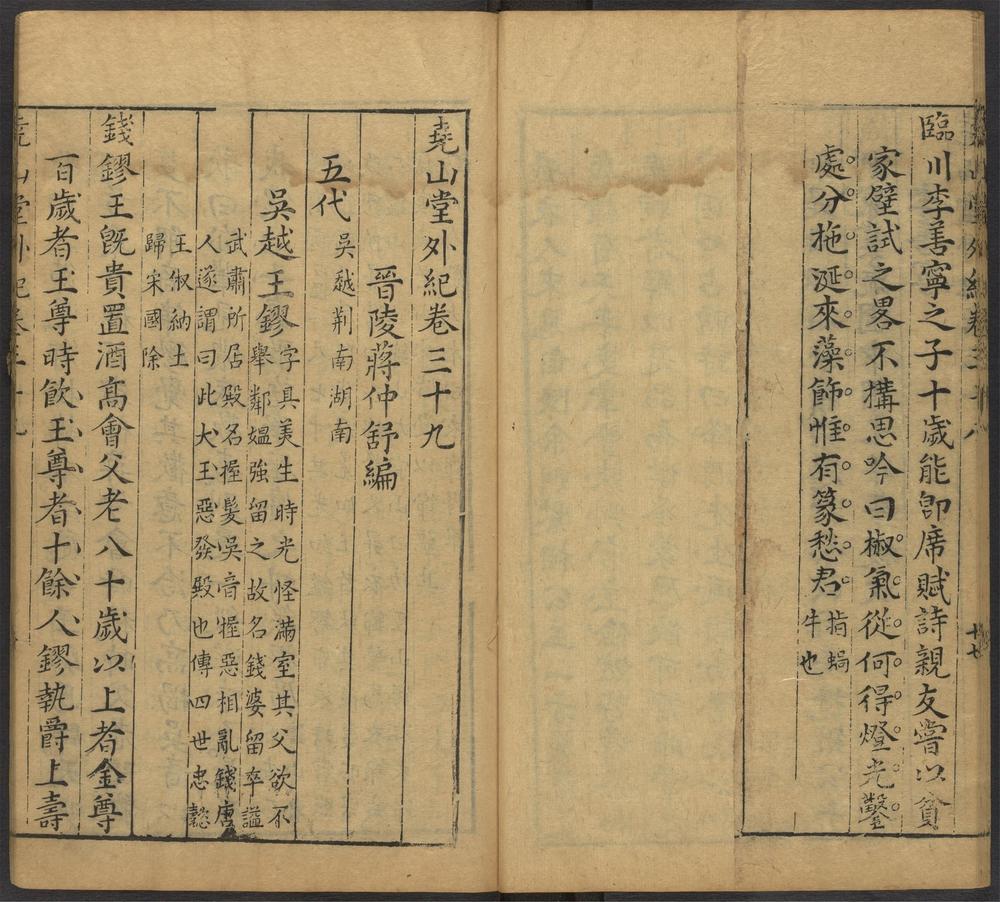 堯山堂外紀卷三十八
廿七
臨川李善寧之子十歲能即席賦詩親友嘗以貧
家壁試之畧不搆思吟曰椒氣從何得燈光鑿
處分拖涎來藻飾惟有篆愁君指蝸
牛也
堯山堂外紀卷三十九
晉陵蔣仲舒編
五代吳越荆南湖南
吳越王鏐字具美生時光怪滿室其父欲不
舉鄰媼強留之故名錢婆留卒謚
武肅所居殿名握髮吳音握惡相亂錢唐
人遂謂曰此犬王惡發殿也傳四世忠懿
王俶納土
歸宋國除
錢鏐王旣貴置酒高會父老八十歲以上者金尊
百歲者玉尊時飲玉尊者十餘人鏐執爵上壽
堯山堂外紀卷三十九